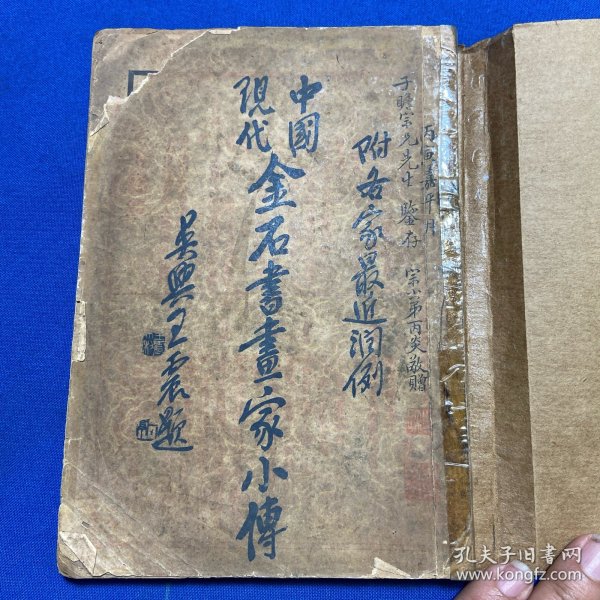 丙子嘉平月
宗兄先生鉴存 宗小弟丙炎敬贈
附各家最近潤例
中國
現代
金石書畫家小傳
吴興王震題
孔夫子旧书网
www.kongfz.com